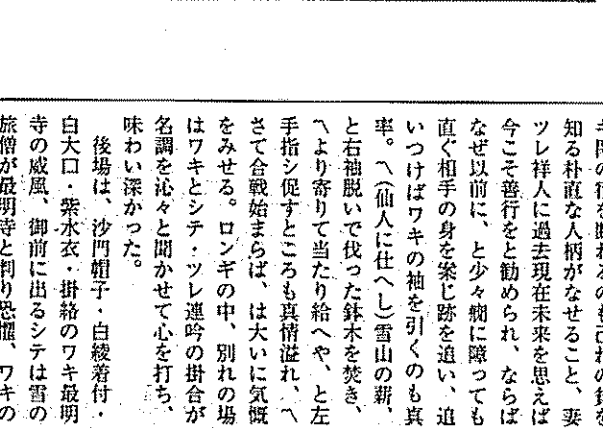 知る朴直な人柄がなせること、妻
ツレ祥人に過去現在未来を思えば
今こそ善行をと勧められ、ならば
なぜ以前に、と少々癇に障っても
直ぐ相手の身を案じ跡を追い、追
いつけばワキの袖を引くのも真
率。〽(仙人に仕へし)雪山の薪、
と右袖脱いで伐った鉢木を焚き、
〽より寄りて当たり給へや、と左
手指シ促すところも真情溢れ、〽
さて合戦始まらば、は大いに気慨
をみせる。ロンギの中、別れの場
はワキとシテ・ツレ連吟の掛合が
名調を沁々と聞かせて心を打ち、
味わい深かった。
後場は、沙門帽子・白綾着付・
白大口・紫水衣・掛絡のワキ最明
寺の威風、御前に出るシテは雪の
旅僧が最明寺と判り恐懼、ワキの